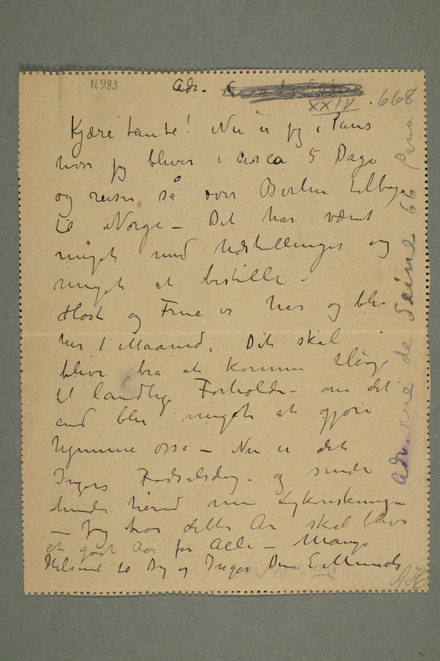 N 983
Adr.
XXIV. 668
Kjære tante! Nu er jeg i Paris
hvor jeg bliver i circa 5 Dage
og reiser så over Berlin tilbage
til Norge – Det har været
meget med Udstillinger og
meget at bestille –
Høst og Frue er her og blir
her 1 Maaned. Det skal
blive bra at komme tilbage
til landlige Forholde – om det
end blir meget at gjøre
hjemme også – Nu er det
Ingers Fødselsdag – og sender
hende herved min Lykønskning
– Jeg tror dette År skal blive
et godt År for Alle – Mange
Hilsener til Dig og Inger Din E Munch
Adr. rue de Seine 66 Paris